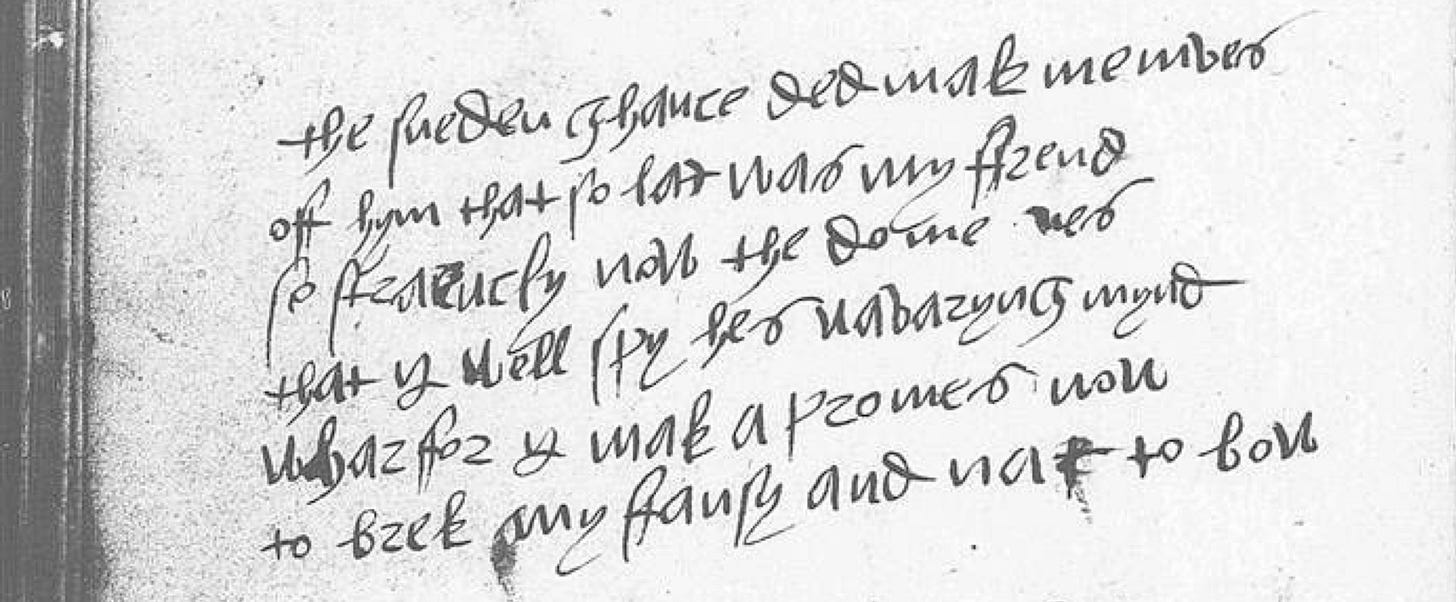 the sueden chance ded mak me mves
off hym that so lat was my ffrend
so straenchly now the dome ves
that y well spy hes vavaryng mynd
wharffor y mak a promes now
to brek my ffansy and nat to bow